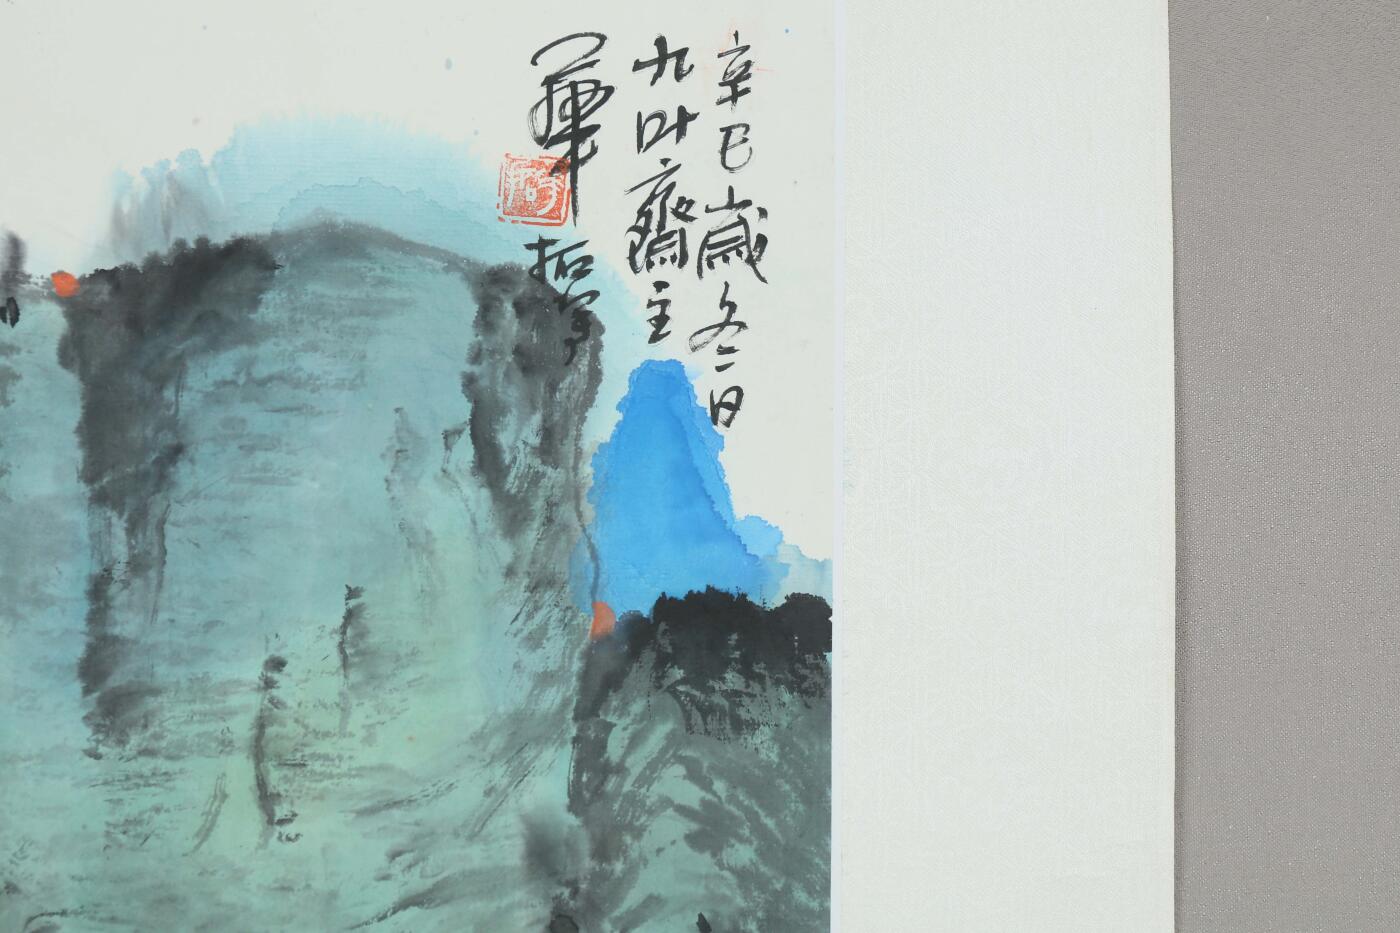 辛巳歲冬日
九叶齋主
華拓写